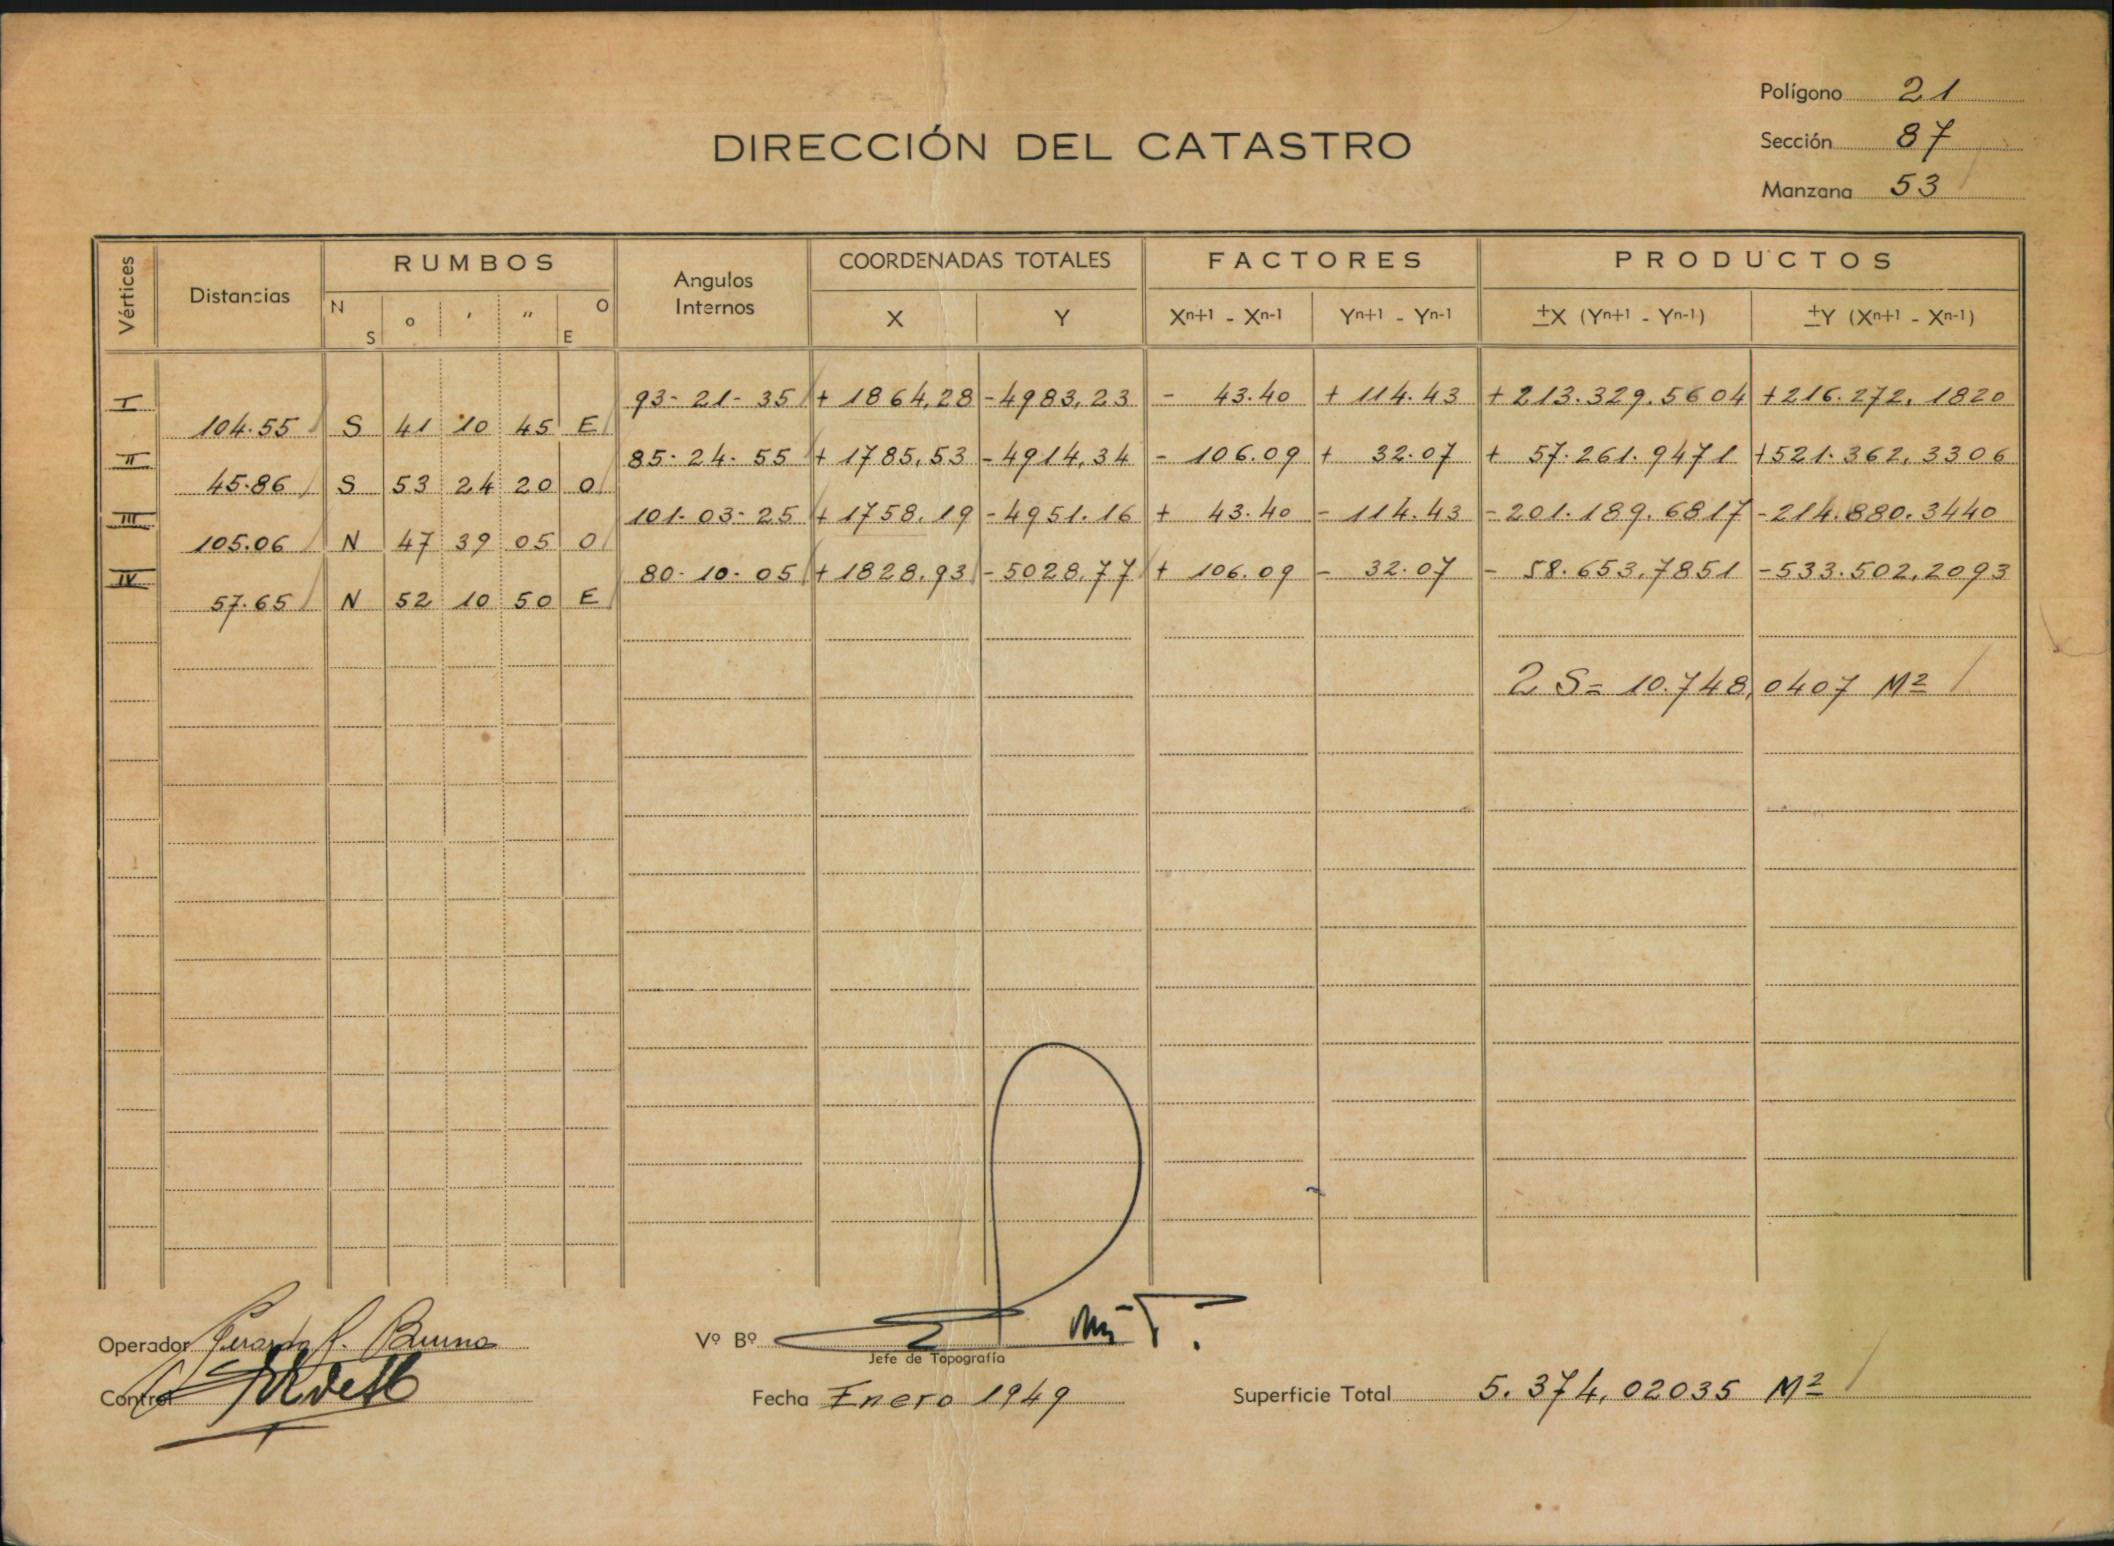 Polígono 21
DIRECCIÓN DEL CATASTRO
Sección 87
Manzana 53
Vértices Distancias RUMBOS Angulos Internos COORDENADAS TOTALES FACTORES PRODUCTOS
N S o ' " O E X Y Xn+1 - Xn-1 Yn+1 - Yn-1 ±X (Yn+1 - Yn-1) ±Y (Xn+1 - Xn-1)
I 93-21-35 + 1864,28 -4983,23 - 43.40 + 114.43 +213.329.5604 +216.272.1820
104.55 S 41 10 45 E
II 85-24-55 + 1785,53 -4914,34 - 106.09 + 32.07 + 57.261.9471 +521.362.3306
45.86 S 53 24 20 O
III 101-03-25 + 1758.19 -4951.16 + 43.40 - 114.43 -201.189.6817 -214.880.3440
105.06 N 47 39 05 O
IV 80-10-05 +1828.93 -5028,77 + 106.09 - 32.07 - 58.653,7851 -533.502,2093
57.65 N 52 10 50 E
2 S= 10.748,0407 M²
Operador
Vº Bº
Jefe de Topografía
Control
Fecha Enero 1949
Superficie Total 5.374,02035 M²